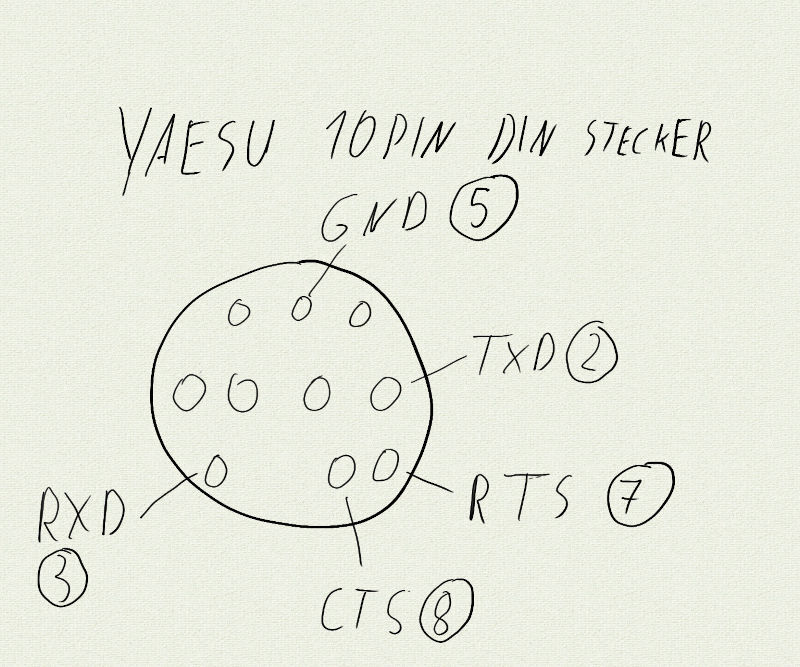 YAESU 10PIN DIN STECKER
GND 5
TXD 2
RTS 7
RXD
3
CTS 8